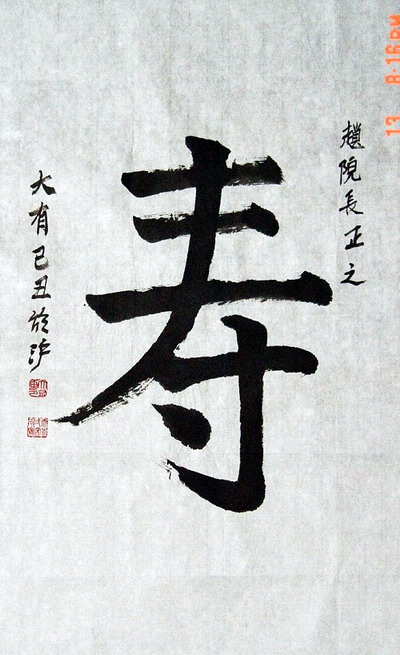 趙院長正之
寿
大有己丑於沪
13 8:16PM